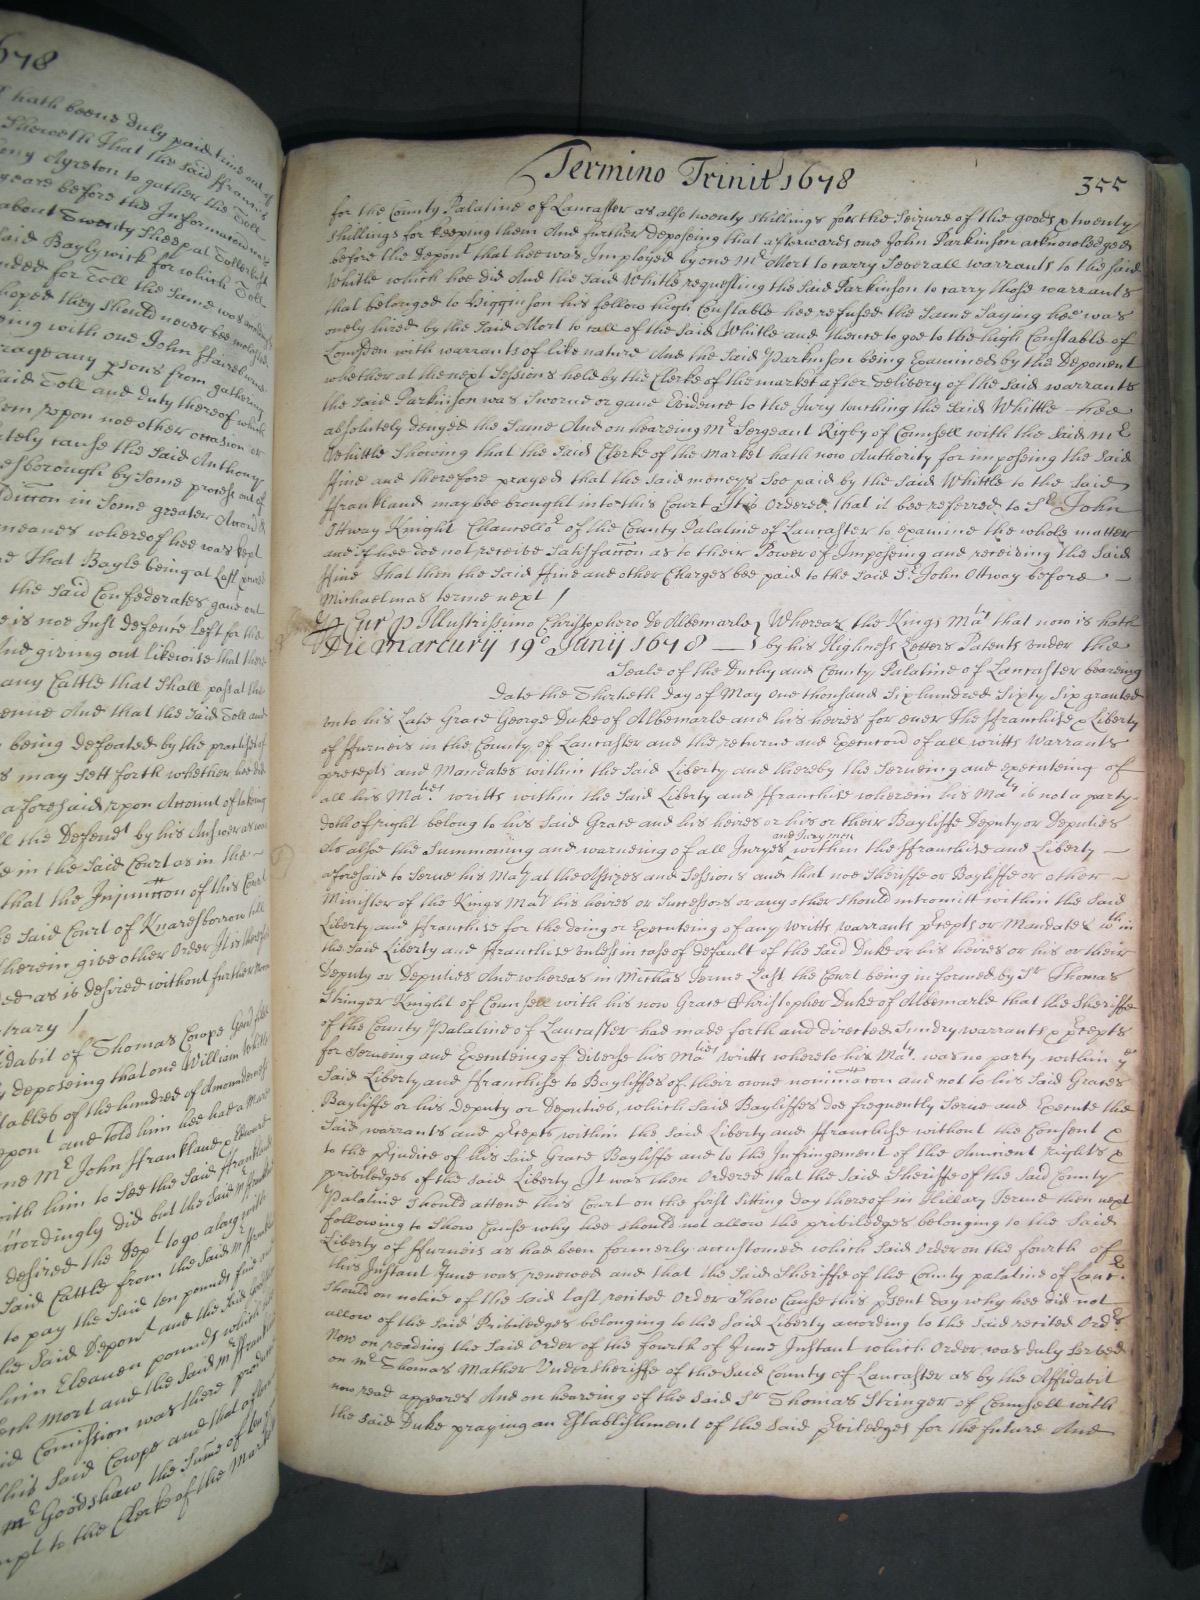 1678
hath beene duly paid time out of
Sheweth That the said ffrancis
Ayreton to gather the Toll
yeare before the Informacon
about Twenty Sheep at
said Baylywick for which Toll
for Toll the same was
hoped they should never bee molested
with one John ffairburne
any psons from gathering
said Toll and Duty thereof which
upon noe other occasion
cause the said Anthony
by some processe out of
in some greater
meanes whereof hee was kept
That Bayle being at last
the said Confederates gaue out
is noe Just defence Left for the
And giving out likewise that
any Cattle that shall pass at the
And that the said Toll and
being defeated by the practises of
may sett forth whether hee did
aforesaid upon Account of taking
the Defendt by his Answer
in the said Court as in the
that the Injunccon of this Court
said Court of Knaresborrow
therein give other Order It is therefore
as is desired without further
trary /
of Thomas Cowpe
deposeing that one William Whitle
of the hundred of Amoundernes
and Told him hee had a
Mr John ffrankland &
with him to see the said ffrankland
accordingly did but the said Mr
desired the Dept to goe along with
said Cattle from the said Mr
to pay the said ten pounds fine and
the said Depont and the said
him Eleaven pounds which
Mort and the said Mr ffrankland
Comission was there
this said Cowpe and that
Mr Goodshaw the sume of
to the Clerke of the Market
Termino Trinit 1678 355
for the County Palatine of Lancaster as also twenty shillings for the Seizure of the goods & twenty
shillings for keeping them And further deposeing that afterwards one John Parkinson acknowledged
before the Depont that hee was Imployed by one Mr Mort to carry severall warrants to the said
Whitle which hee did And the said Whitle requesting the said Parkinson to carry those warrants
that belonged to Higginson his fellow high Constable hee refused the same saying hee was
onely hired by the said Mort to call of the said Whitle and thence to goe to the high Constable of
Lonsden with warrants of like nature And the said Parkinson being Examined by the Deponent
whether at the next Sessions held by the Clerke of the market after delivery of the said warrants
the said Parkinson was sworne or gaue Evidence to the Jury touching the said Whittle hee
absolutely denyed the same And on heareing Mr Sergeant Rigby of Counsell with the said Mr
Whittle Showing that the said Clerke of the Market hath now Authority for imposeing the said
ffine and therefore prayed that the said moneys soe paid by the said Whittle to the said
ffrankland may bee brought into this Court It is Ordered that it bee referred to Sr John
Ottway Knight Chancellor of the County Palatine of Lancaster to examine the whole matter
and if hee doe not receive Satisfaccon as to their Power of Imposeing and receiving the said
ffine That then the said ffine and other Charges bee paid to the said Sr John Ottway before
Michaelmas terme next /
Cur p Illustrissimo Christophero De Albemarle } Whereas the Kings Maty that now is hath
Die Mercurij 19o Junij 1678 } by his Highness Letters Patents under the
Seale of the Duchy and County Palatine of Lancaster beareing
date the Thirtieth day of May One thousand six hundred Sixty Six granted
unto his Late Grace George Duke of Albemarle and his heires for ever The ffranchise & Liberty
of ffurneis in the County of Lancaster and the returne and Execucon of all writts Warrants
precepts and Mandates within the said Liberty and thereby the serveing and executeing of
all his Maties writts within the said Liberty and ffranchise wherein his Maty is not a party
doth of right belong to his said Grace and his heires or his or their Bayliffe Deputy or Deputies
As also the summoning and warneing of all Juryes and Jury men within the ffranchise and Liberty
aforesaid to serve his Maty at the Assizes and Sessions and that noe Sheriffe or Bayliffe or other
Minister of the Kings Maty his heires or Successors or any other should intromitt within the said
Liberty and ffranchise for the doing or Executeing of any writts warrants precepts or Mandates wthin
the said Liberty and ffranchise unless in case of default of the said Duke or his heires or his or their
Deputy or Deputies And whereas in Michas Terme Last the Court being informed by Sr Thomas
Stringer Knight of Counsell with his now Grace Christopher Duke of Albemarle that the Sheriffe
of the County Palatine of Lancaster had made forth and directed sundry warrants & precepts
for serveing and Executeing of diverse his Maties writts whereto his Maty was no party within ye
said Liberty and ffranchise to Bayliffes of their owne nominacon and not to his said Graces
Bayliffe or his Deputy or Deputies, which said Bayliffes doe frequently serve and Execute the
said warrants and precepts within the said Liberty and ffranchise without the Consent &
to the prejudice of his said Grace Bayliffe and to the Infringement of the Auncient rights &
priviledges of the said Liberty It was then Ordered that the said Sheriffe of the said County
Palatine should attend this Court on the first sitting day thereof in Hillary Terme then next
following to show Cause why hee should not allow the priviledges belonging to the said
Liberty of ffurneis as had been formerly accustomed which said Order on the fourth of
this Instant June was renewed and that the said Sheriffe of the County palatine of Lancr
should on notice of the said last recited Order show Cause this present day why hee did not
allow of the said Priviledges belonging to the said Liberty according to the said recited Ordr
Now on reading the said Order of the fourth of June Instant which Order was duly served
on Mr Thomas Mather Undersheriffe of the said County of Lancaster as by the Affidavit
now read appeares And on heareing of the said Sr Thomas Stringer of Counsell with
the said Duke praying an Establishment of the said priviledges for the future And